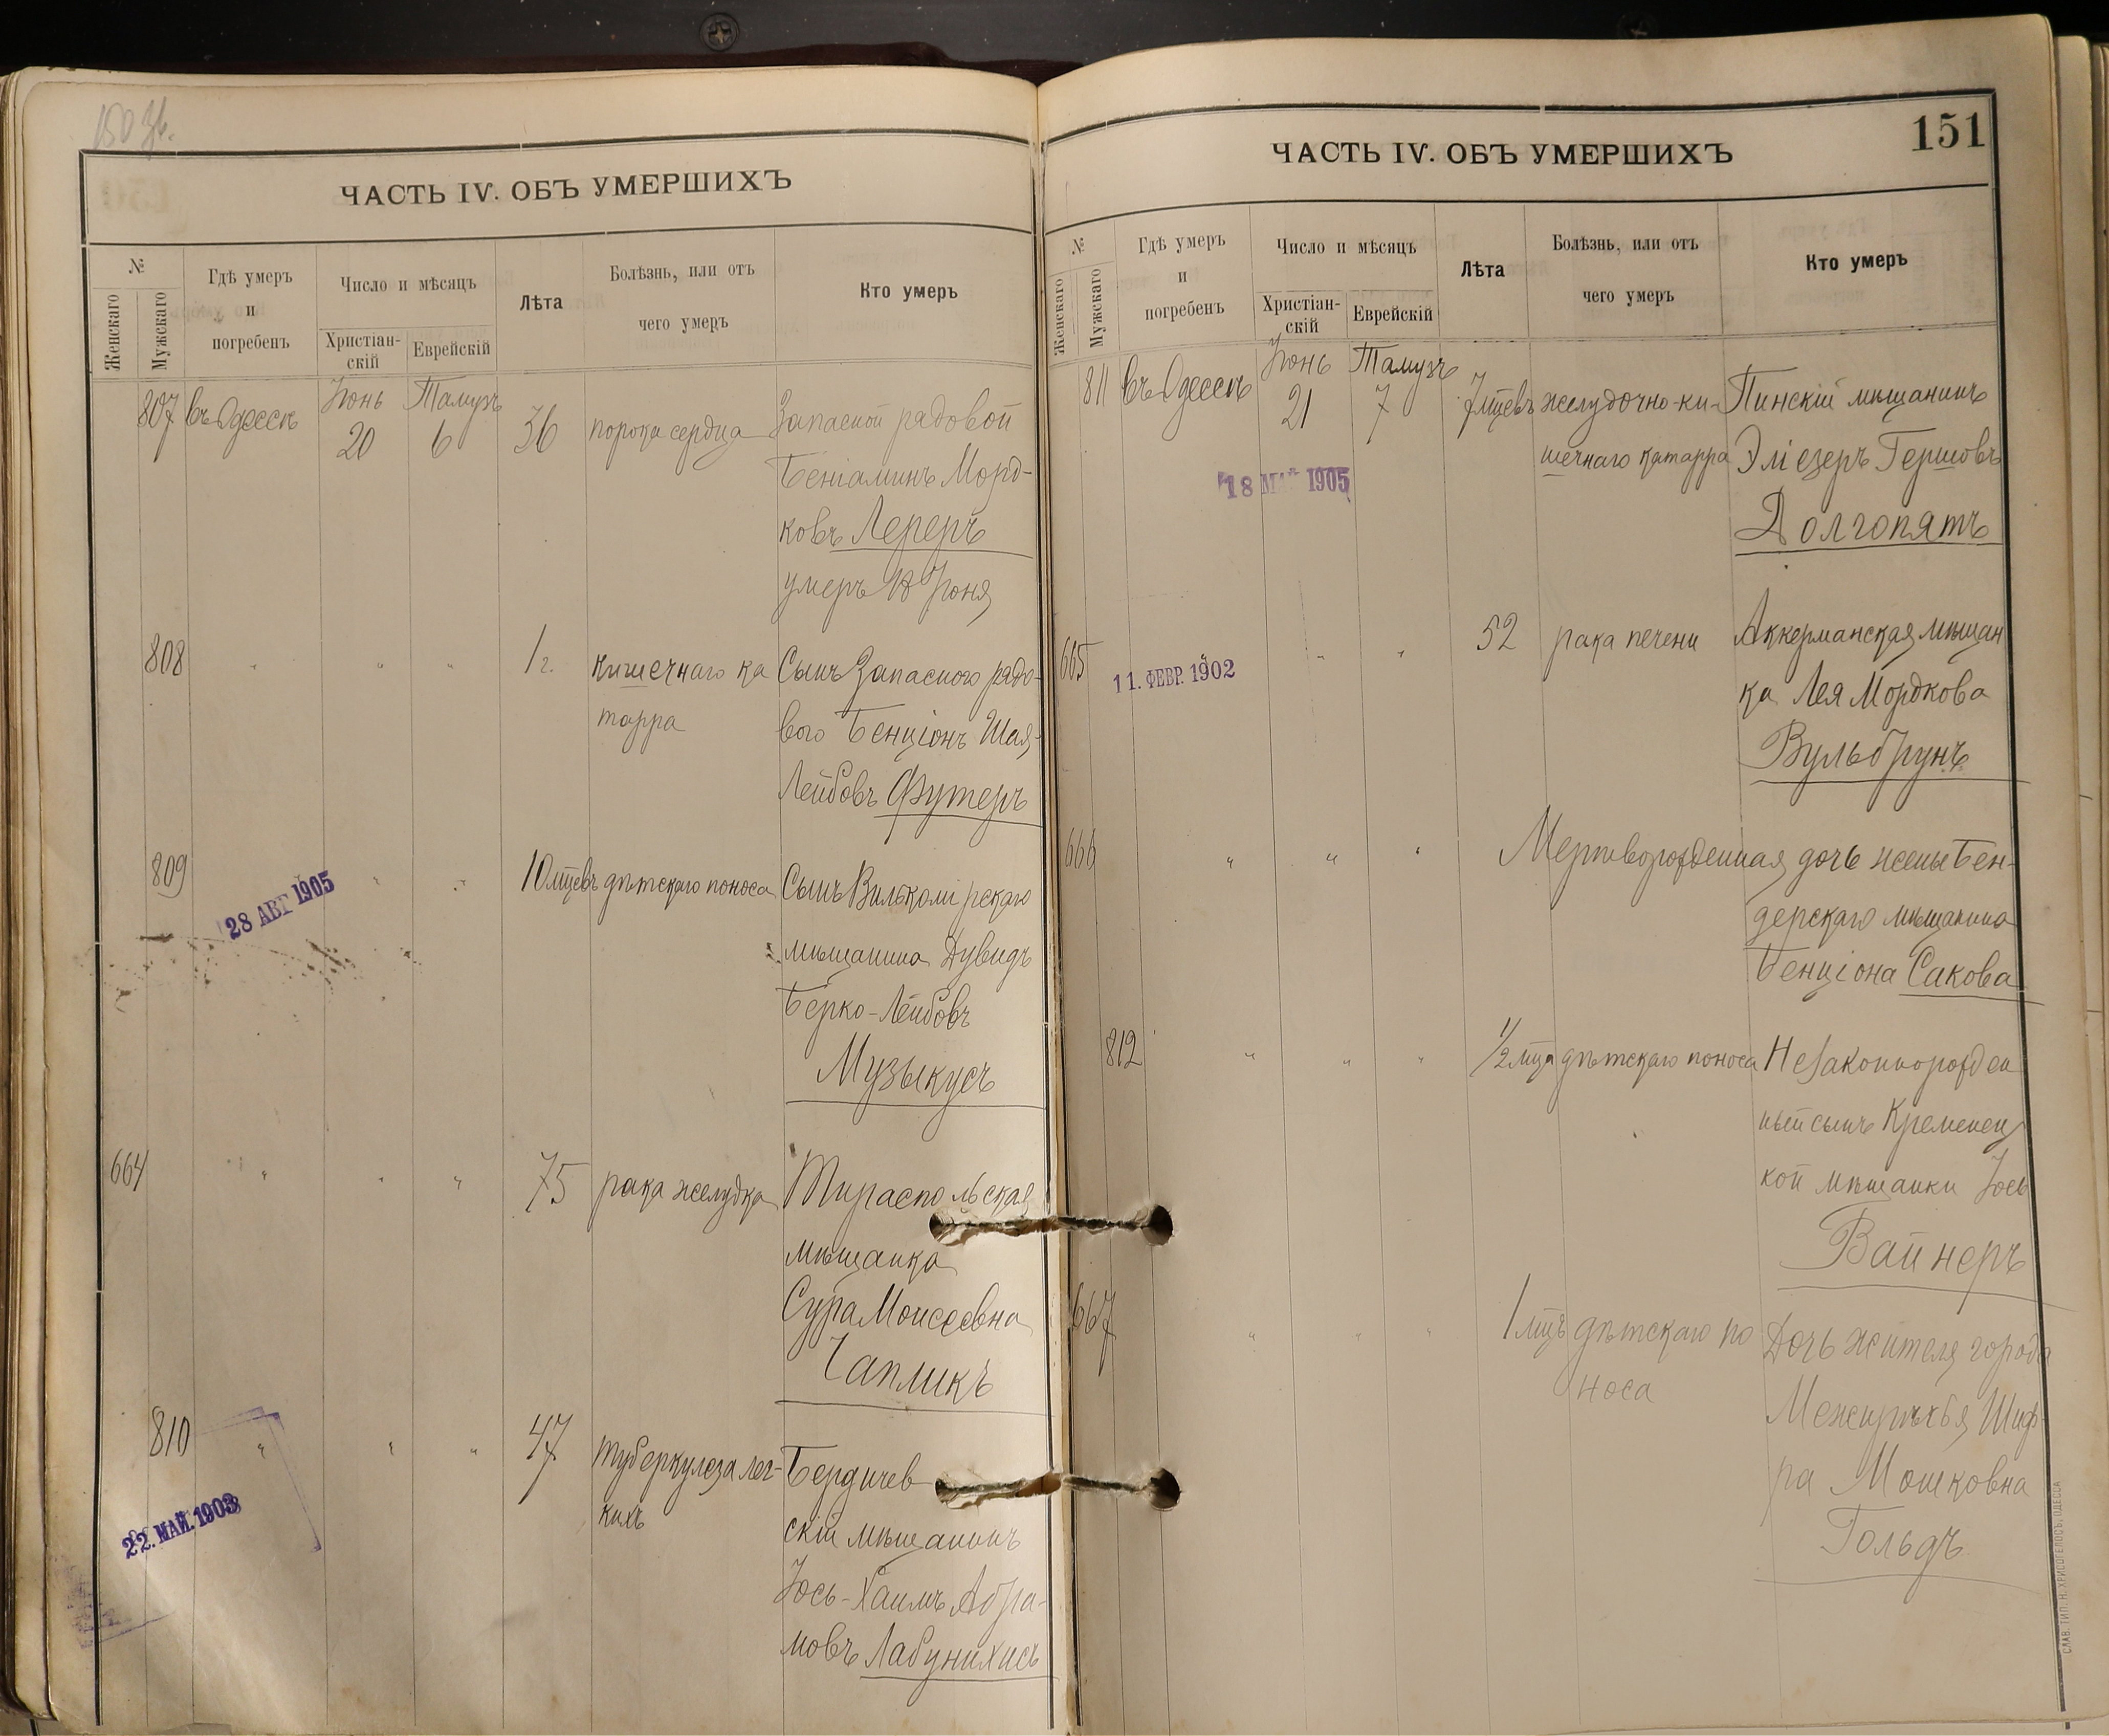 150 об.
ЧАСТЬ IV. ОБЪ УМЕРШИХЪ
№
Женскаго
Мужскаго
Гдѣ умеръ
и
погребенъ
Число и мѣсяцъ
Христіан-
скій
Еврейскій
Лѣта
Болѣзнь, или отъ
чего умеръ
Кто умеръ
807 въ Одессѣ Іюнь 20 Тамузъ 6 36 порока сердца Запасной рядовой
Беніаминъ Морд-
ковъ Лереръ
умеръ 18 Іюня
808 " " " 1 г. кишечнаго ка Сынъ Запаснаго рядо-
тарра вого Бенціонъ Шая-
Лейбовъ Футеръ
809 " " 10 мцевъ дѣтскаго поноса Сынъ Вилькомірскаго
28 АВГ 1905
мѣщанина Дувидъ
Берко-Лейбовъ
Музыкусъ
664 " " " 75 рака желудка Тираспольская
мѣщанка
Сура Моисеевна
Чапликъ
810 " " " 47 туберкулеза лег- Бердичев
кихъ скій мѣщанинъ
22. МАЙ. 1903
Іось-Хаимъ Абра-
мовъ Лабунихисъ
151
ЧАСТЬ IV. ОБЪ УМЕРШИХЪ
№
Женскаго
Мужскаго
Гдѣ умеръ
и
погребенъ
Число и мѣсяцъ
Христіан-
скій
Еврейскій
Лѣта
Болѣзнь, или отъ
чего умеръ
Кто умеръ
811 въ Одессѣ Іюнь 21 Тамузъ 7 7 мцевъ желудочно-ки- Пинскій мѣщанинъ
шечнаго катарра Эліезеръ Гершовъ
18 МАЙ 1905
Долгопятъ
665 " " " 52 рака печени Аккерманская мѣщан
11. ФЕВР. 1902
ка Лея Мордкова
Вульбрунъ
666 " " " Мертворожденная дочь жены Бен-
дерскаго мѣщанина
Бенціона Сакова
812 " " " 1/2 мца дѣтскаго поноса Незаконнорожден
ный сынъ Кременец
кой мѣщанки Іось
Вайнеръ
667 " " " 1 мцъ дѣтскаго по Дочь жителя города
носа Межирѣчья Шиф-
ра Мошковна
Гольдъ
СЛАВ. ТИП. Н. ХРИСОГЕЛОСЪ, ОДЕССА